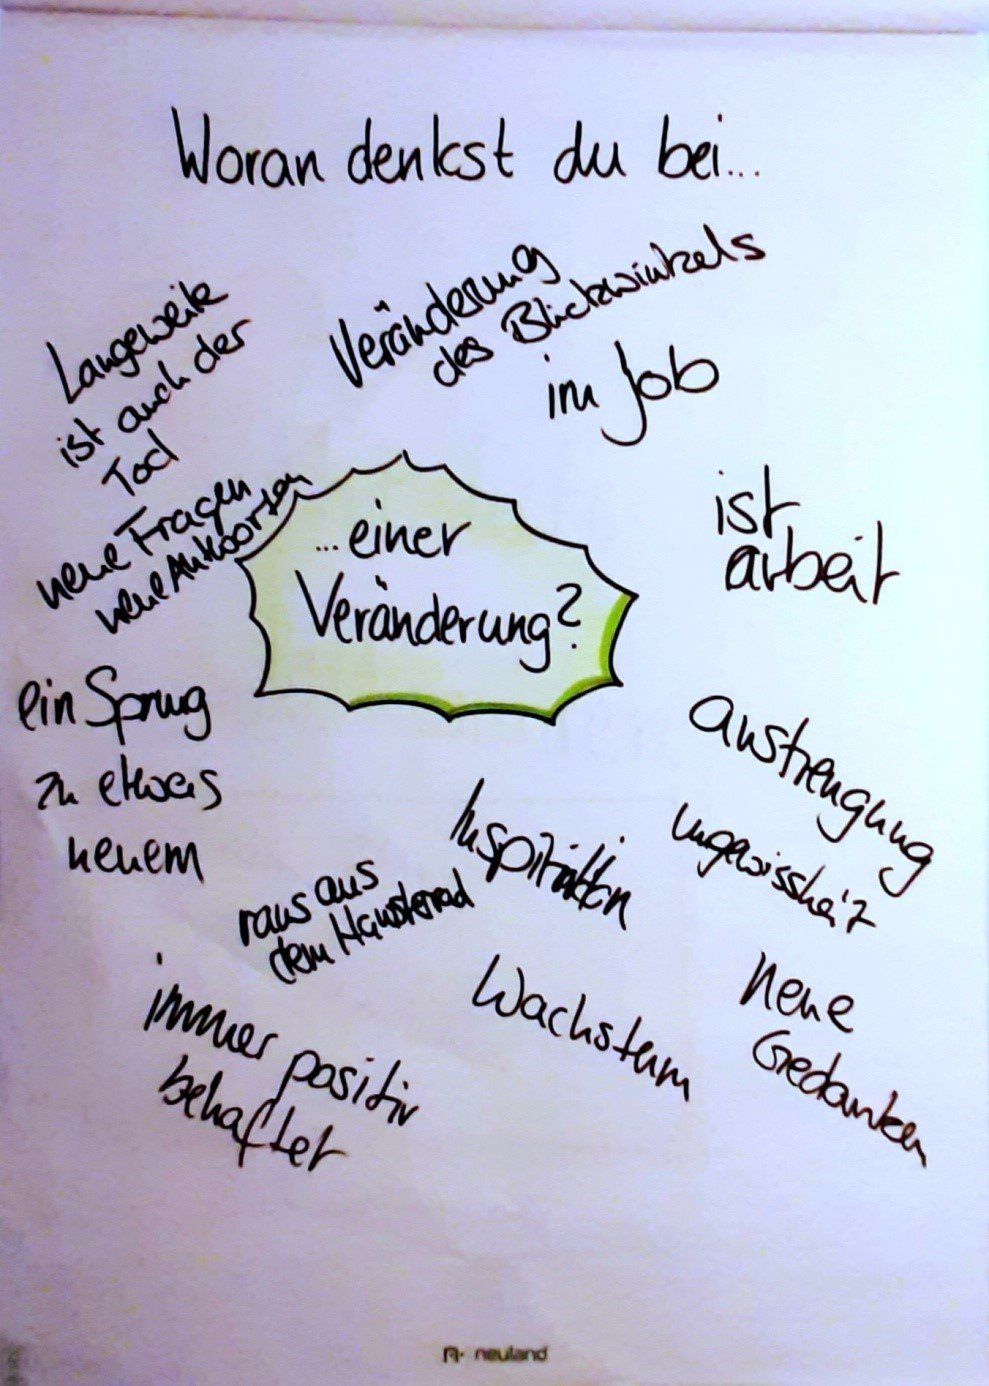 Woran denkst du bei...
Veränderung
des Blickwinkels
im Job
Langeweile
ist auch der
Tod
neue Fragen
neue Antworten
...einer
Veränderung?
ist
arbeit
ein Sprung
zu etwas
neuem
Anstrengung
ungewissheit
Inspiration
raus aus
dem Hamsterrad
Wachstum
Neue
Gedanken
immer positiv
behaftet
neuland